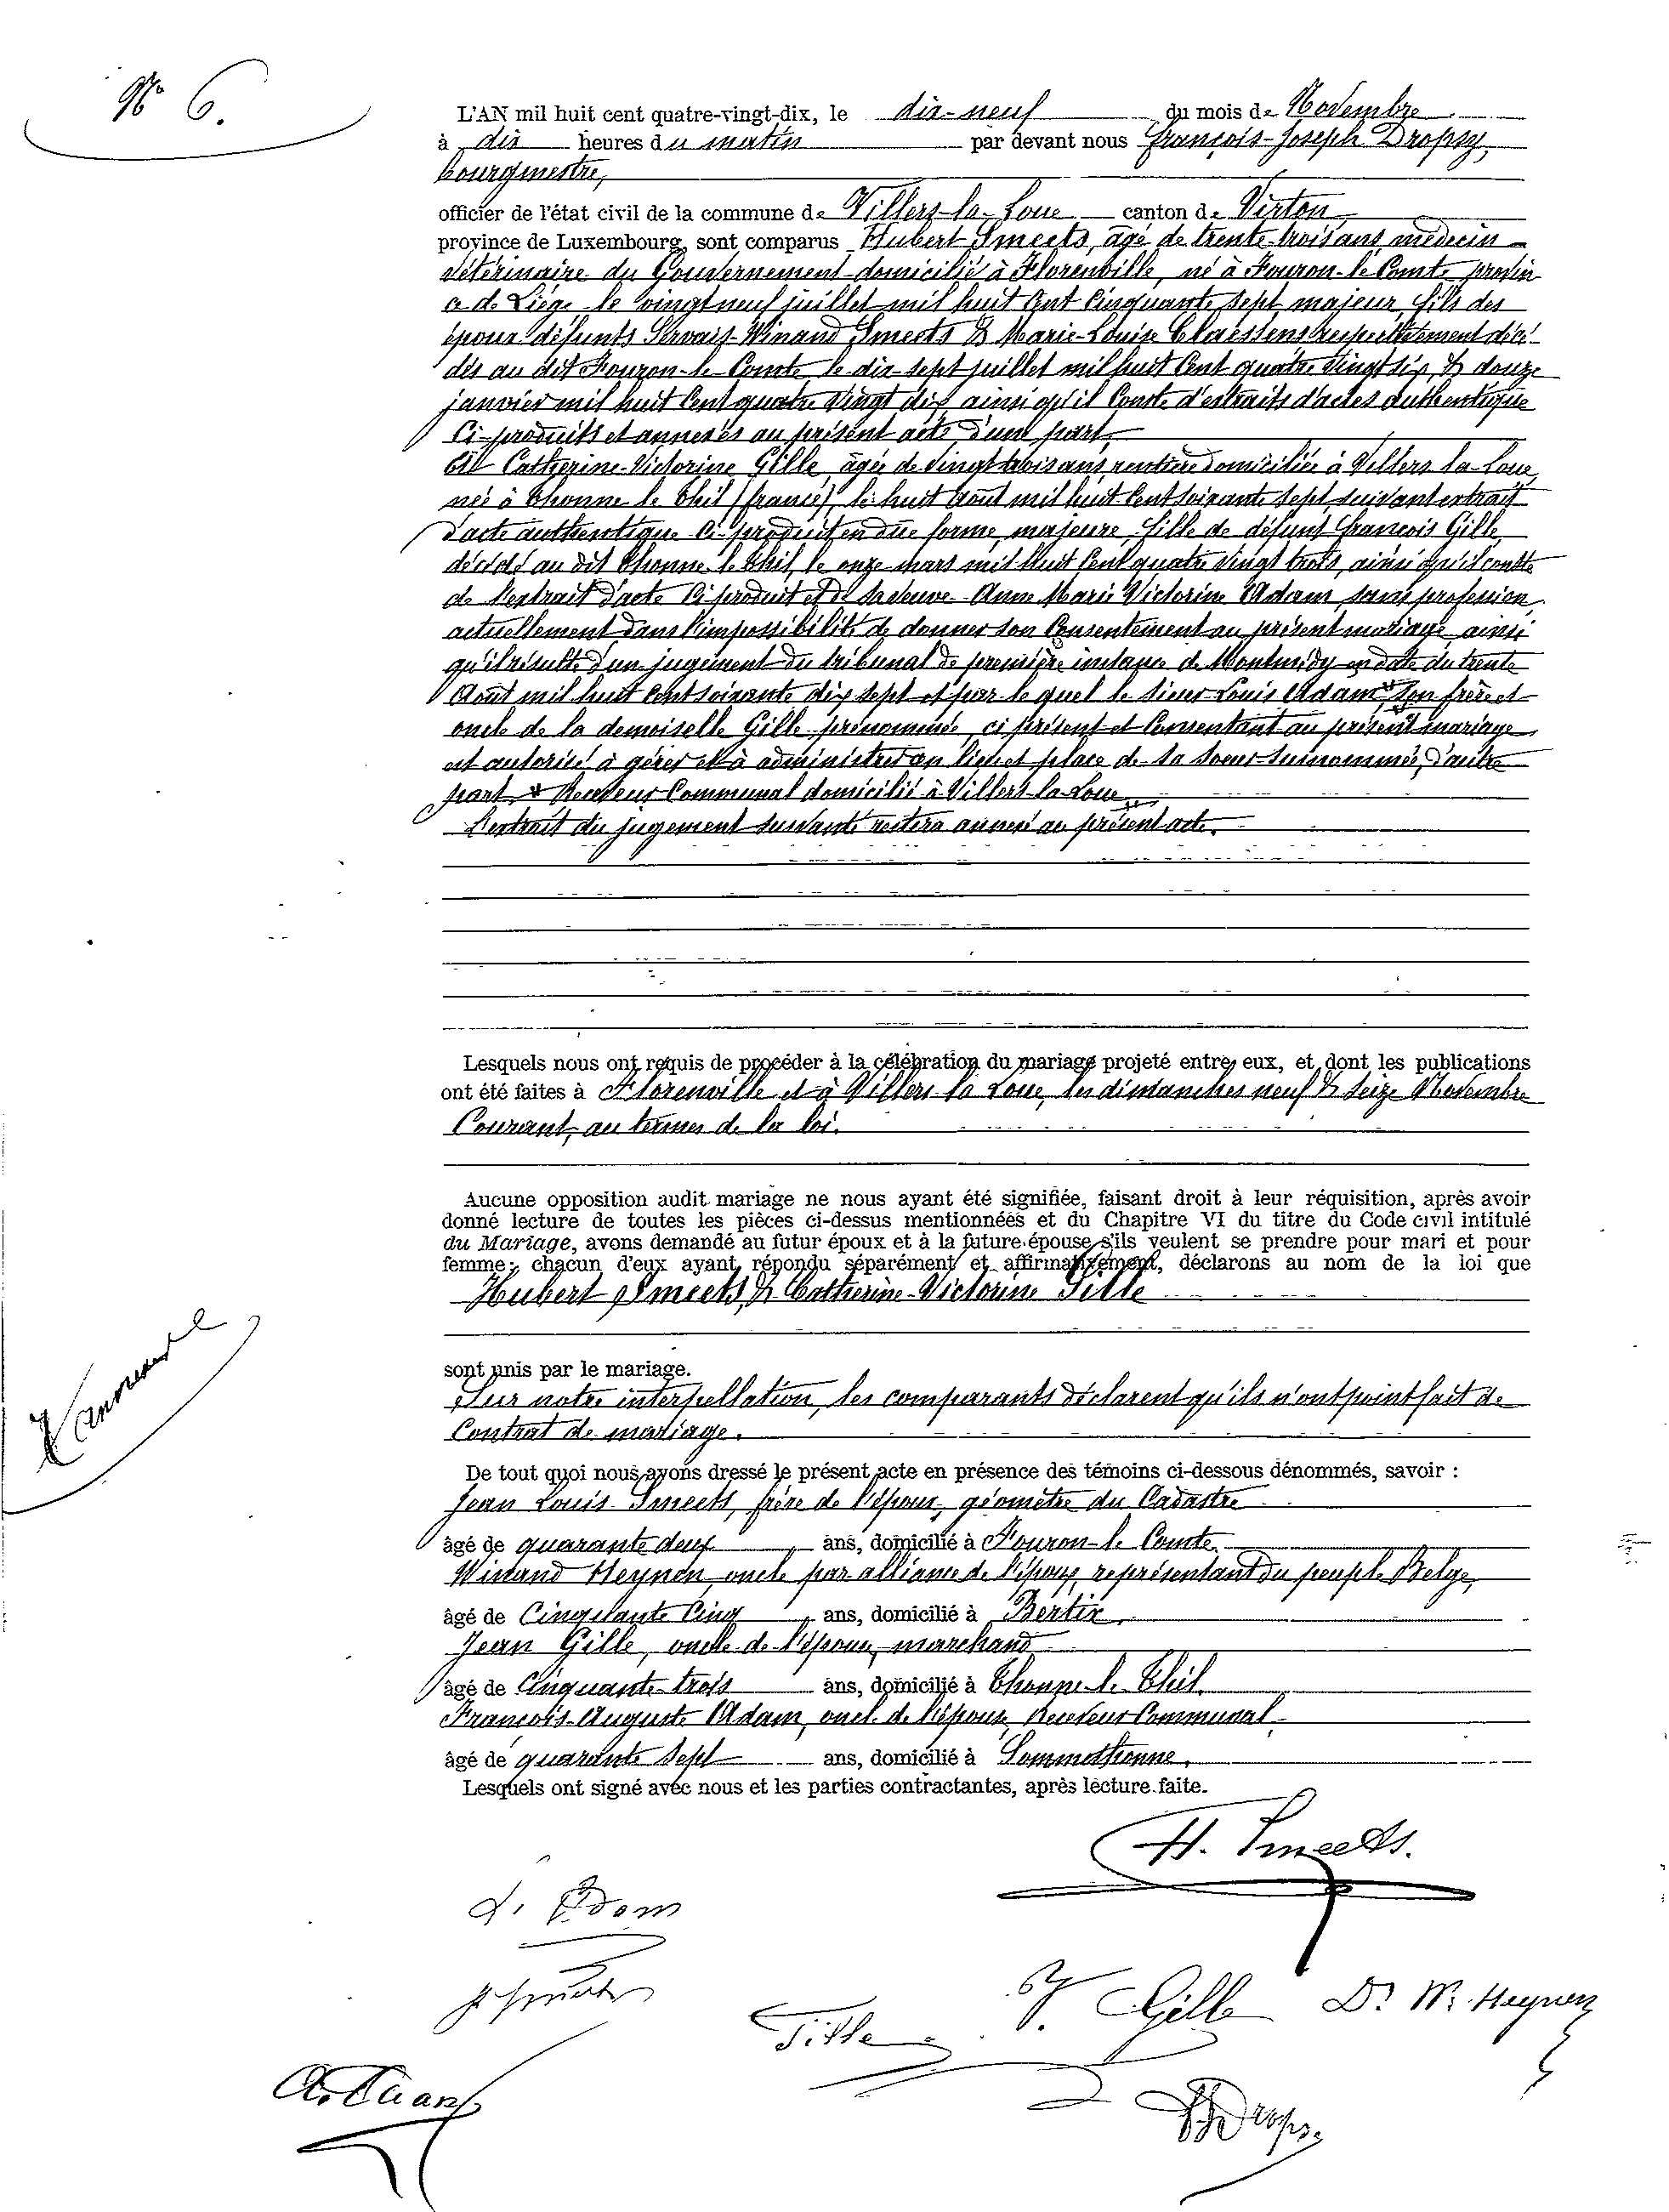 N° 6.
L'AN mil huit cent quatre-vingt-dix, le dix-neuf du mois de Novembre
à dix heures du matin par devant nous François-Joseph Dropsy,
bourgmestre,
officier de l'état civil de la commune de Villers-la-Loue canton de Virton
province de Luxembourg, sont comparus Hubert Smeets, âgé de trente-trois ans, médecin
vétérinaire du Gouvernement domicilié à Florenville, né à Fouron-le-Comte provin
ce de Liége le vingt neuf juillet mil huit cent cinquante sept, majeur, fils des
époux défunts Servais-Winand Smeets & Marie-Louise Claessens respectivement décé-
dés au dit Fouron-le-Comte le dix-sept juillet mil huit cent quatre vingt six & douze
janvier mil huit cent quatre vingt dix ainsi qu'il conste d'extraits d'actes authentique
ci-produits et annexés au présent acte d'une part,
Et Catherine-Victorine Gille, âgée de vingt trois ans, rentière domiciliée à Villers-la-Loue,
née à Thonne le Thil (france), le huit août mil huit cent soixante sept, suivant extrait
d'acte authentique ci-produit en due forme, majeure, fille de défunt françois Gille,
décédé au dit Thonne le Thil, le onze mars mil huit cent quatre vingt trois, ainsi qu'il conste
de l'extrait d'acte ci produit et de sa veuve Anne Marie Victorine Adam, sans profession,
actuellement dans l'impossibilité de donner son consentement au présent mariage ainsi
qu'il résulte d'un jugement du tribunal de première instance de Montmédy en date du trente
Août mil huit cent soixante dix sept et par le quel le sieur Louis Adam* son frère et
oncle de la demoiselle Gille prénommée, ci présent et consentant au présent mariage
est autorisé à gérer et à administrer au lieu et place de sa soeur susnommée, d'autre
part. * Receveur Communal domicilié à Villers-la-Loue
L'extrait du jugement suivant restera annexé au présent acte.
Lesquels nous ont requis de procéder à la célébration du mariage projeté entre eux, et dont les publications
ont été faites à Florenville et à Villers la Loue, les dimanches neuf & seize Novembre
Courant, au termes de la loi.
Aucune opposition audit mariage ne nous ayant été signifiée, faisant droit à leur réquisition, après avoir
donné lecture de toutes les pièces ci-dessus mentionnées et du Chapitre VI du titre du Code civil intitulé
du Mariage, avons demandé au futur époux et à la future épouse s'ils veulent se prendre pour mari et pour
femme; chacun d'eux ayant répondu séparément et affirmativement, déclarons au nom de la loi que
Hubert Smeets & Catherine-Victorine Gille
sont unis par le mariage.
Sur notre interpellation, les comparants déclarent qu'ils n'ont point fait de
Contrat de mariage.
De tout quoi nous avons dressé le présent acte en présence des témoins ci-dessous dénommés, savoir :
Jean Louis Smeets, frère de l'époux, géomètre du Cadastre
âgé de quarante deux ans, domicilié à Fouron-le Comte.
Winand Heynen oncle par alliance de l'époux, représentant du peuple Belge,
âgé de Cinquante Cinq ans, domicilié à Bertrix.
Jean Gille, oncle de l'épouse, marchand
âgé de Cinquante-trois ans, domicilié à Thonne le Thil.
François-Auguste Adam, oncle de l'épouse, Receveur Communal
âgé de quarante sept ans, domicilié à Sommethonne.
Lesquels ont signé avec nous et les parties contractantes, après lecture faite.
H. Smeets.
L. Adam
J. Smeets
V. Gille
Dr W. Heynen
Gille
A. Adam
Dropsy